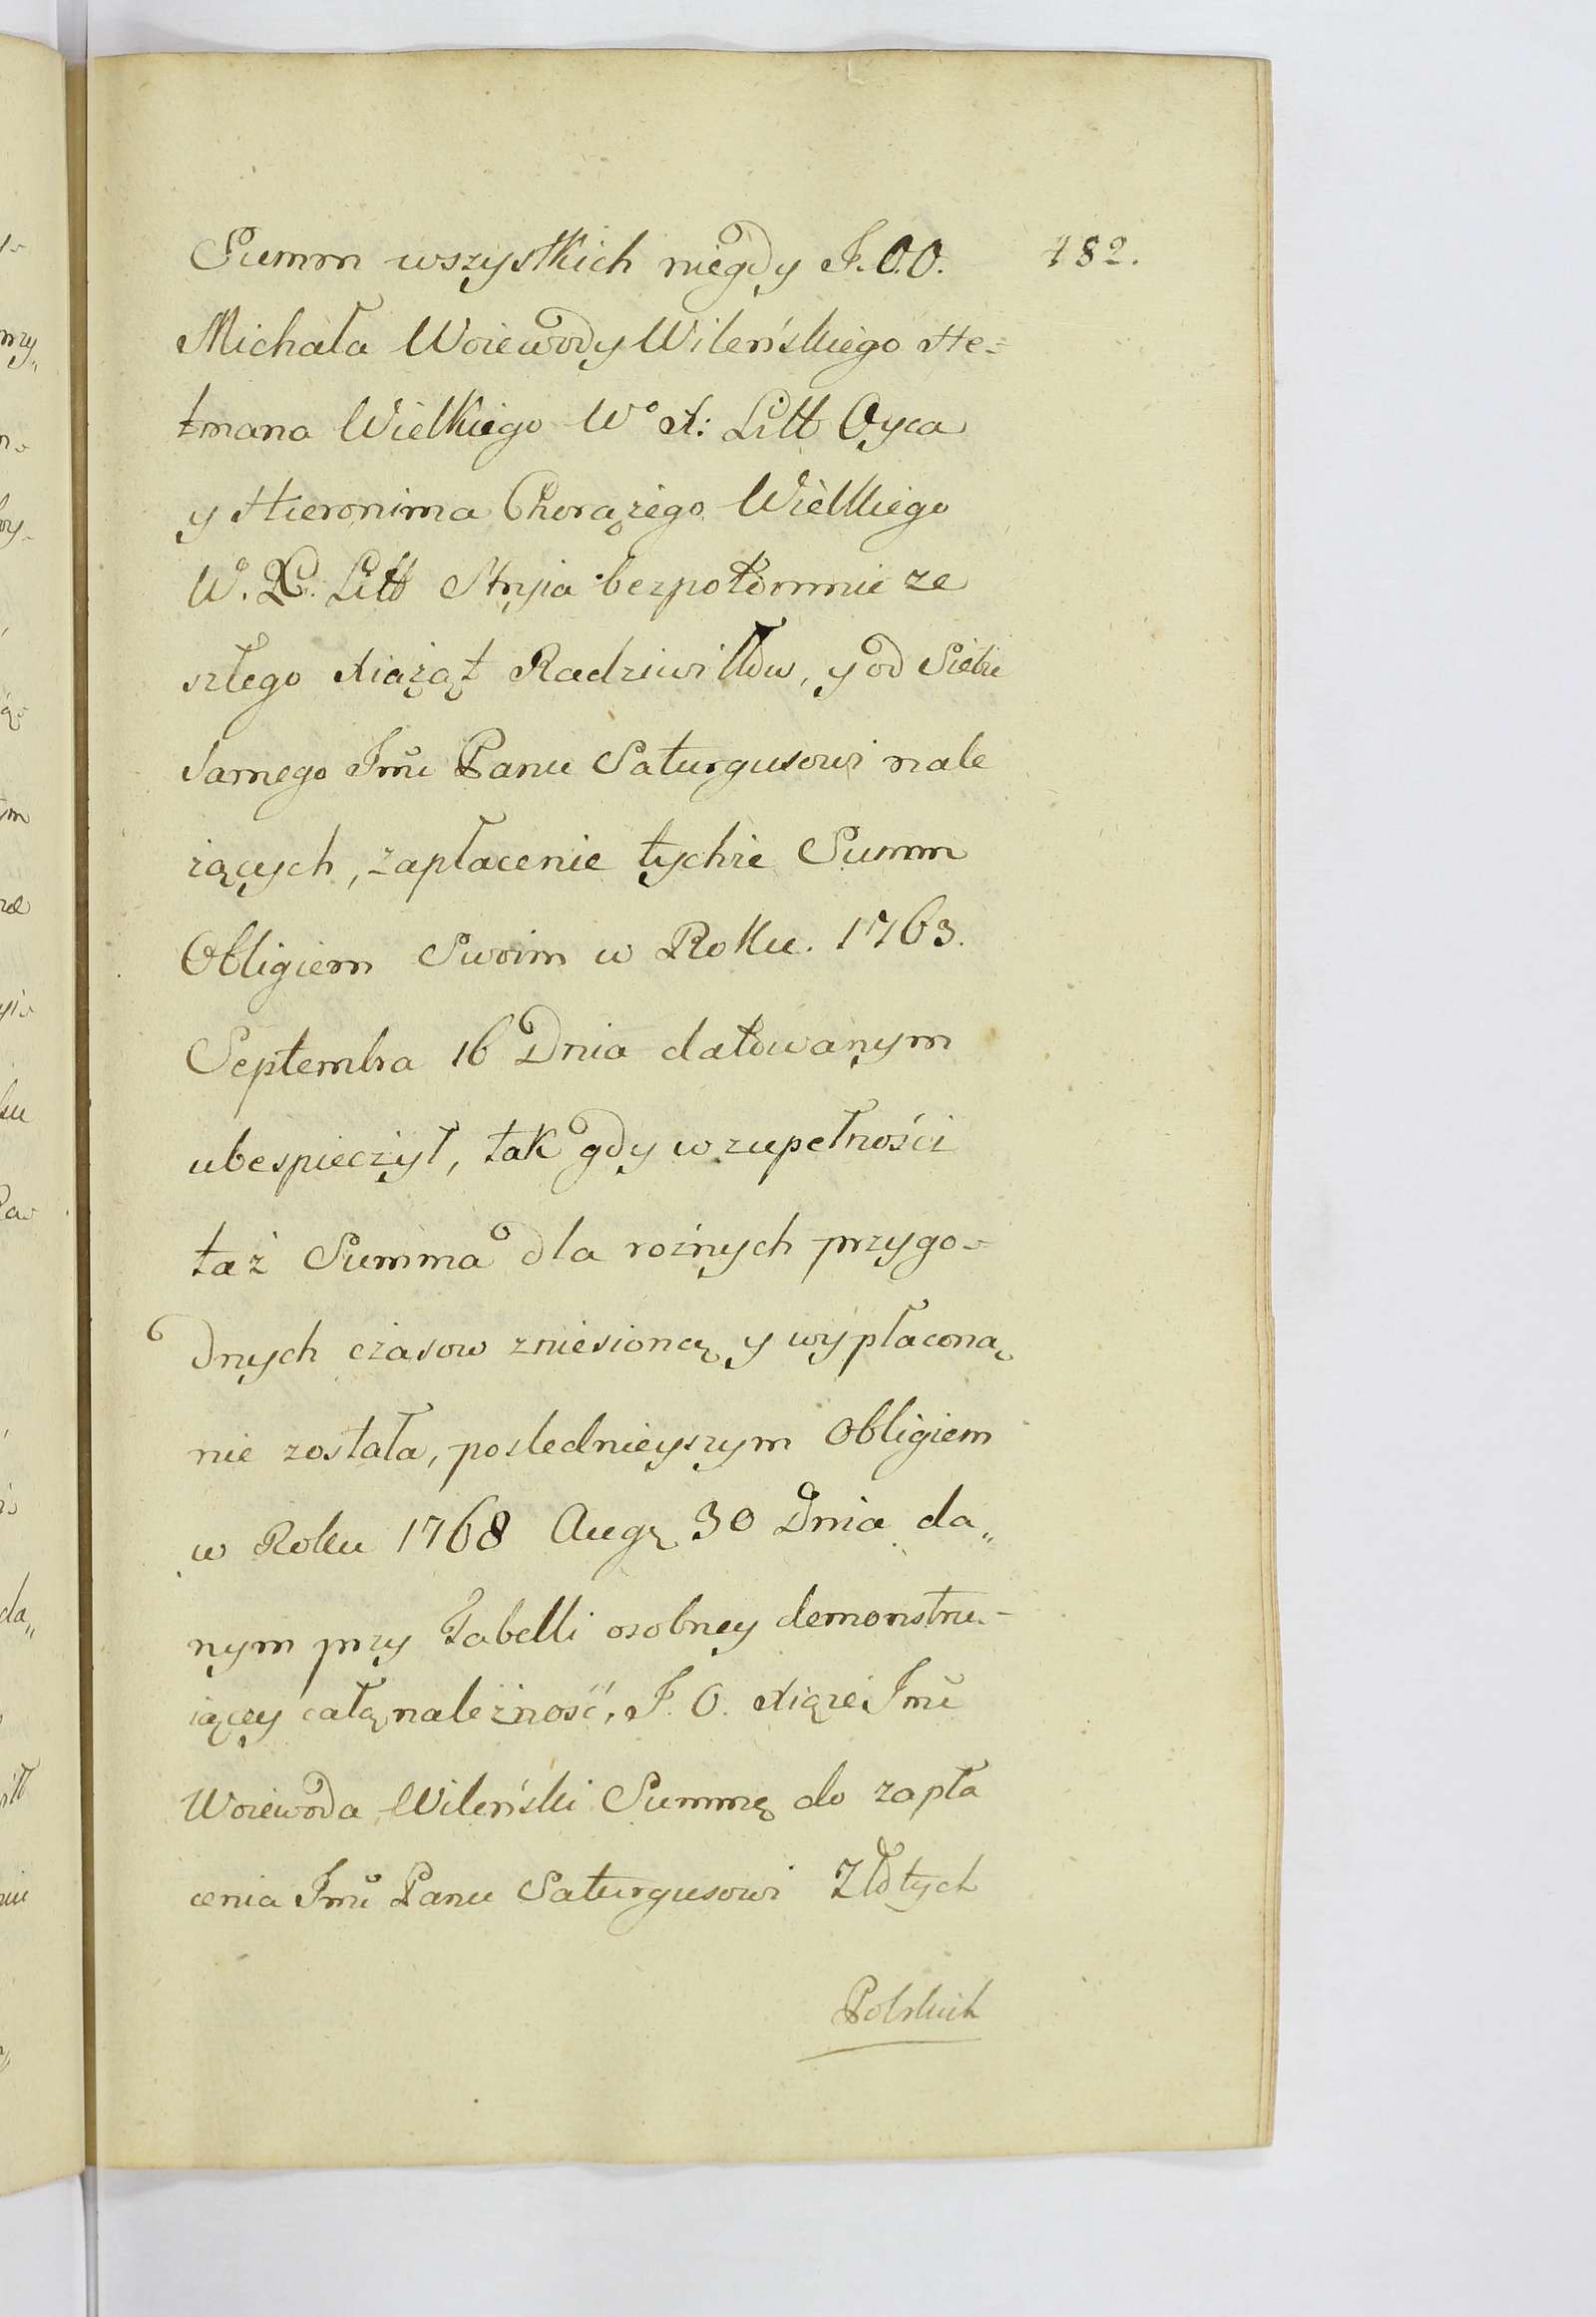 Summ wszystkich niegdy J.O.O. 182.
Michała Woiewody Wileńskiego He=
tmana Wielkiego Wº X: Litt Oyca
y Hieronima Chorązego Wielkiego
W. X. Litt Stryia bezpotomnie ze
szłego Xiąząt Radziwiłłow, y od Siebie
samego Jmć Panu Saturgusowi nale
zących, zapłacenie tychże Summ
Obligiem Swoim w Roku. 1763.
Septembra 16 Dnia datowanym
ubespieczył, tak gdy w zupełności
taż Summa dla rożnych przygo-
dnych czasow zniesioną y wypłaconą
nie została, poslednieyszym Obligiem
w Roku 1768 Aug 30 Dnia da„
nym przy Tabelli osobney demonstru-
iącey całą należność, J.O. Xiąże Jmć
Woiewoda Wileński Summę do zapła
cenia Jmć Panu Saturgusowi Złotych
Polskich